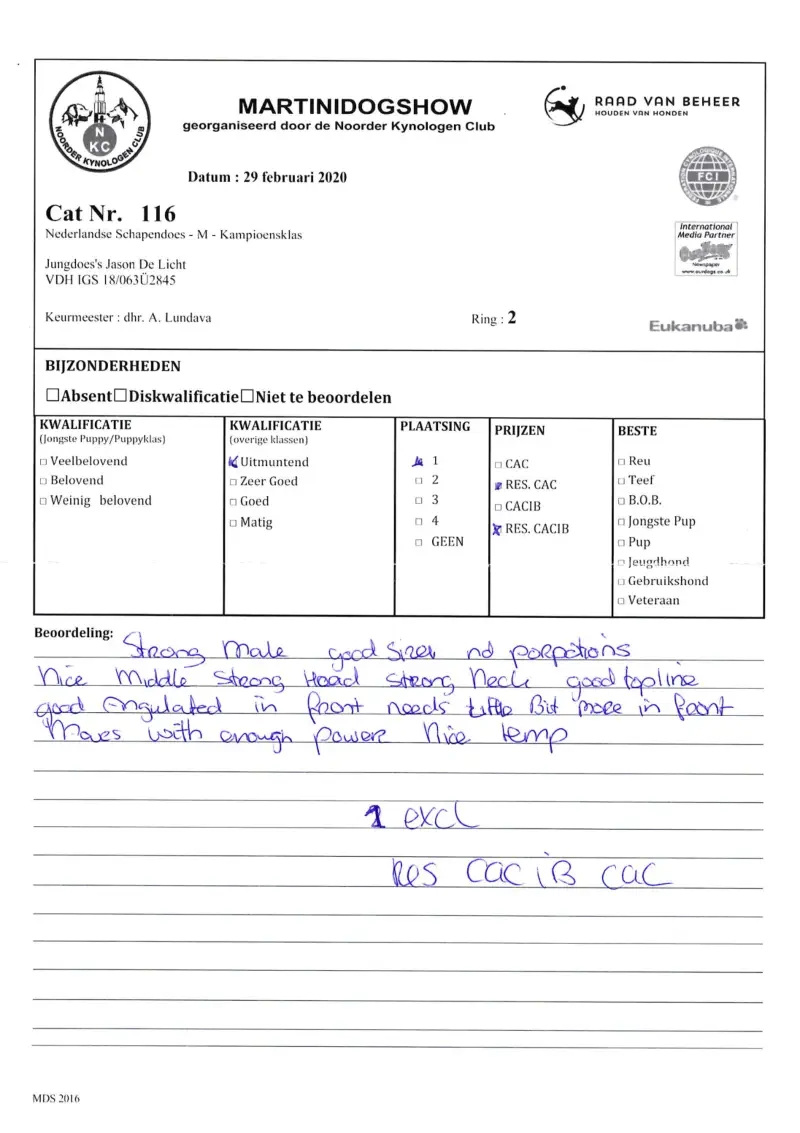 MARTINIDOGSHOW
georganiseerd door de Noorder Kynologen Club
NOORDER KYNOLOGEN CLUB
N
KC
RAAD VAN BEHEER
HOUDEN VAN HONDEN
Datum : 29 februari 2020
FCI
Cat Nr. 116
Nederlandse Schapendoes - M - Kampioensklas
International
Media Partner
Newspaper
www.ourdogs.co.uk
Jungdoes's Jason De Licht
VDH IGS 18/063Ü2845
Keurmeester : dhr. A. Lundava
Ring : 2
Eukanuba
BIJZONDERHEDEN
☐Absent☐Diskwalificatie☐Niet te beoordelen
KWALIFICATIE
(Jongste Puppy/Puppyklas)
□ Veelbelovend
□ Belovend
□ Weinig belovend
KWALIFICATIE
(overige klassen)
☒ Uitmuntend
□ Zeer Goed
□ Goed
□ Matig
PLAATSING
☒ 1
□ 2
□ 3
□ 4
□ GEEN
PRIJZEN
□ CAC
☒ RES. CAC
□ CACIB
☒ RES. CACIB
BESTE
□ Reu
□ Teef
□ B.O.B.
□ Jongste Pup
□ Pup
□ Jeugdhond
□ Gebruikshond
□ Veteraan
Beoordeling:
Strong Male good Sizes nd porpotions
Nice Middle Strong Head strong Neck good topline
good Engulated in front needs little Bit more in front
Moves with enough power Nice temp
1 excl
Res CACIB CAC
MDS 2016